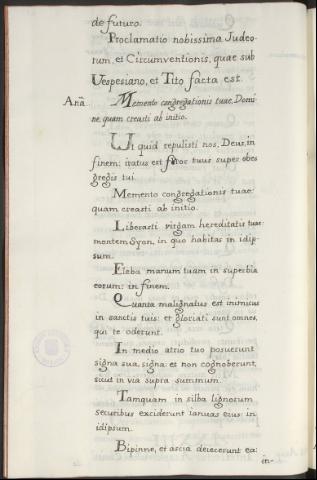 de futuro.
Proclamatio nobissima Judeo-
rum, et Circumventionis, quae sub
Vespesiano, et Tito facta est.
Ana Memento congregationis tuae, Domi
ne, quam creasti ab initio.
Ut quid repulisti nos, Deus, in
finem: iratus est furor tuus super obes
gregis tui.
Memento congregationis tuae:
quam creasti ab initio.
Liberasti virgam hereditatis tuae:
montem Syon, in quo habitas in idip-
sum.
Eleba manum tuam in superbia
eorum: in finem.
Quanta malignatus est inimicus
in sanctis tuis: et gloriati sunt omnes,
qui te oderunt.
In medio atrio tuo posuerunt
signa sua, signa: et non cognoberunt,
sicut in via supra summum.
Tamquam in silba lignorum
securibus exciderunt ianuas eius: in
idipsum.
Bipinne, et ascia deiecerunt ea:
in-